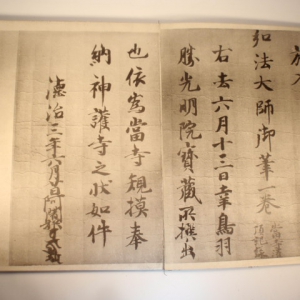 施入
弘法大師御筆一巻
右去六月十三日幸鳥羽
勝光明院寶蔵所撰出
也依為當寺規模奉
納神護寺之状如件
德治三年